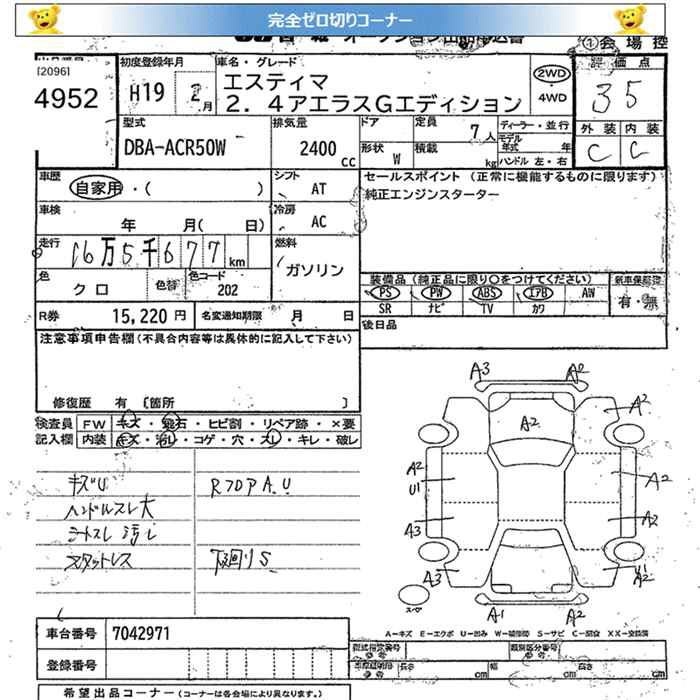 完全ゼロ切りコーナー
会場控
[2096]
4952
初度登録年月
H19 2月
車名・グレード
エスティマ
2.4アエラスGエディション
2WD・4WD
評価点
3 5
外装 内装
C C
型式
DBA-ACR50W
排気量
2400cc
ドア
形状 W
定員 7人
積載 kg
ディーラー・並行
モデル年式 年
ハンドル 左・右
車歴
自家用・( )
シフト AT
セールスポイント(正常に機能するものに限ります)
純正エンジンスターター
車検
年 月( 日)
冷房 AC
走行
16万5千677km
燃料
ガソリン
色 クロ
色替
色コード 202
装備品(純正品に限り〇をつけてください)
新車保証書
PS PW ABS エアB AW
SR ナビ TV カワ
有・無
R券 15,220円
名変通知期限 月 日
後日品
注意事項申告欄(不具合内容等は具体的に記入して下さい)
修復歴 有 〔箇所 〕
検査員記入欄
FW キズ・飛石・ヒビ割・リペア跡・×要
内装 キズ・汚レ・コゲ・穴・スレ・キレ・破レ
キズU
ハンドルスレ大
シートスレ汚レ
スタットレス
RフロアA.U
下廻りS
A3 A2
A2 A2
A2 U1 A2
A3 A2
A3 U1 A2
スペア
A1 A2
A-キズ E-エクボ U-凹み W-補修跡 S-サビ C-腐食 XX-交換済
車台番号 7042971
登録番号
型式指定番号 類別区分番号
長さ cm 幅 cm 高さ cm
希望出品コーナー(コーナーは各会場により異なります。)